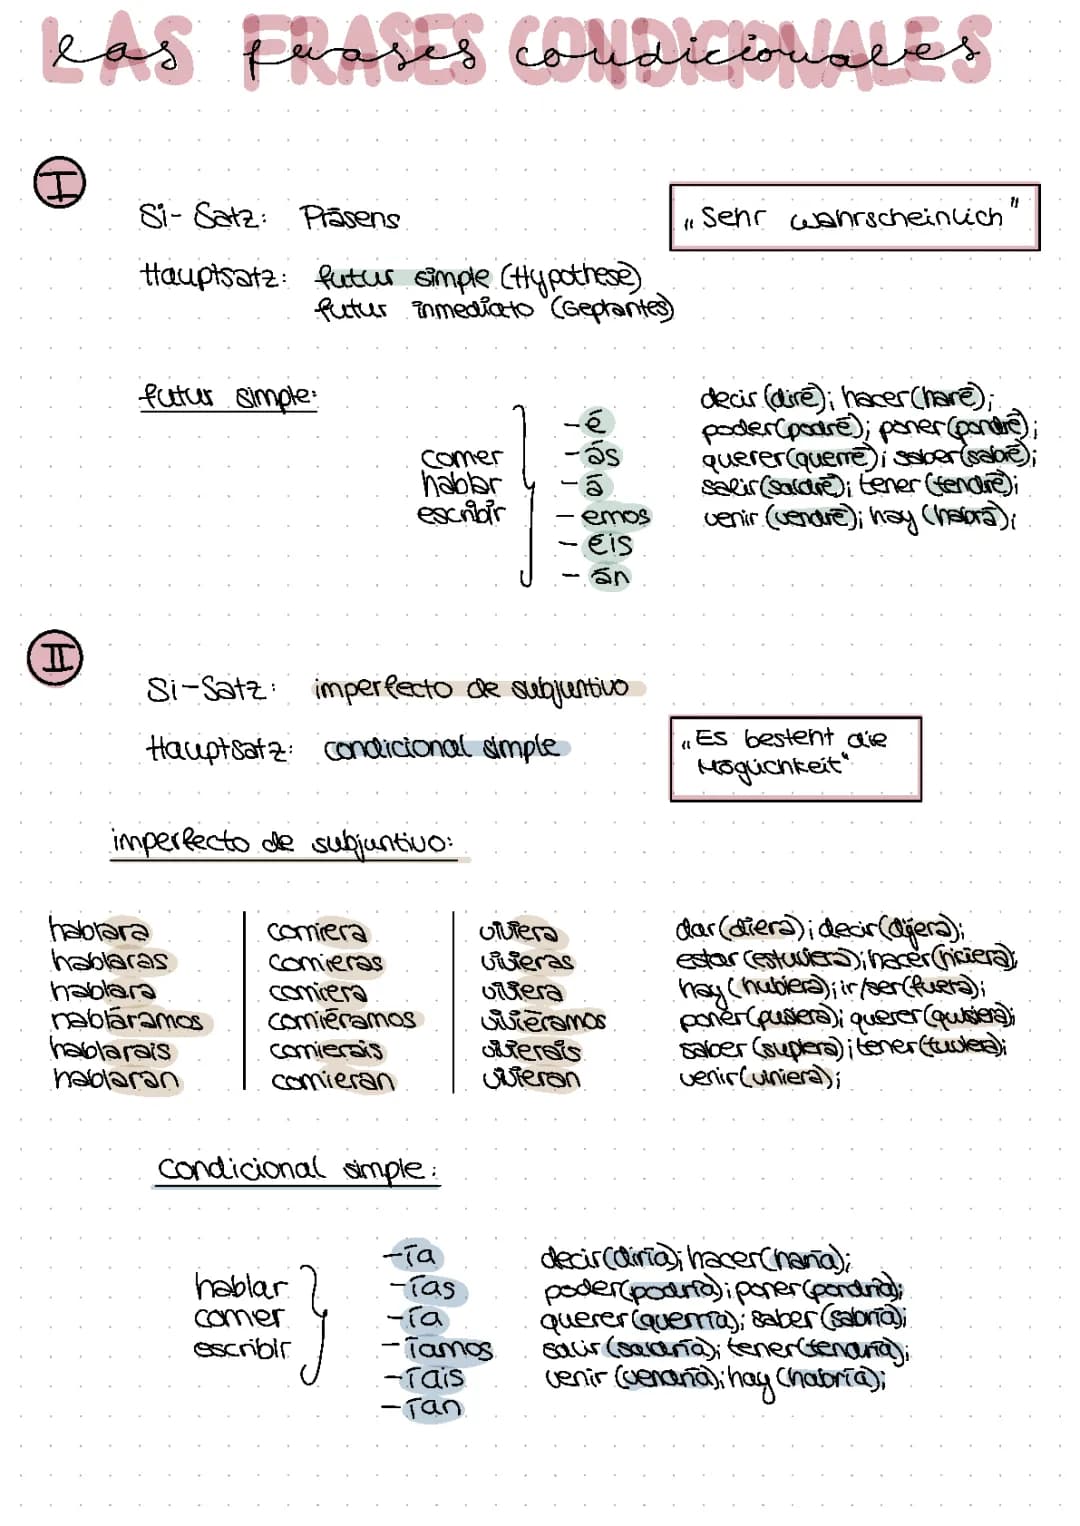 las frases condicionales
LAS FRASES CONDICIONALES
I
Si-Satz: Präsens
„Sehr wahrscheinlich"
Hauptsatz: futur simple (Hypothese)
futur inmediato (Geplantes)
futur simple:
comer
hablar
escribir
-é
-ás
-á
-emos
-éis
-án
decir (diré); hacer (haré);
poder (podré); poner (pondré);
querer (querré); saber (sabré);
salir (saldré); tener (tendré);
venir (vendré); hay (habrá);
II
Si-Satz: imperfecto de subjuntivo
Hauptsatz: condicional simple
„Es besteht die
Möglichkeit"
imperfecto de subjuntivo:
hablara
hablaras
hablara
habláramos
hablarais
hablaran
comiera
comieras
comiera
comiéramos
comierais
comieran
viviera
vivieras
viviera
viviéramos
vivierais
vivieran
dar (diera); decir (dijera);
estar (estuviera); hacer (hiciera);
hay (hubiera); ir/ser (fuera);
poner (pusiera); querer (quisiera);
saber (supiera); tener (tuviera);
venir (viniera);
condicional simple:
hablar
comer
escribir
-ía
-ías
-ía
-íamos
-íais
-ían
decir (diría); hacer (haría);
poder (podría); poner (pondría);
querer (querría); saber (sabría);
salir (saldría); tener (tendría);
venir (vendría); hay (habría);